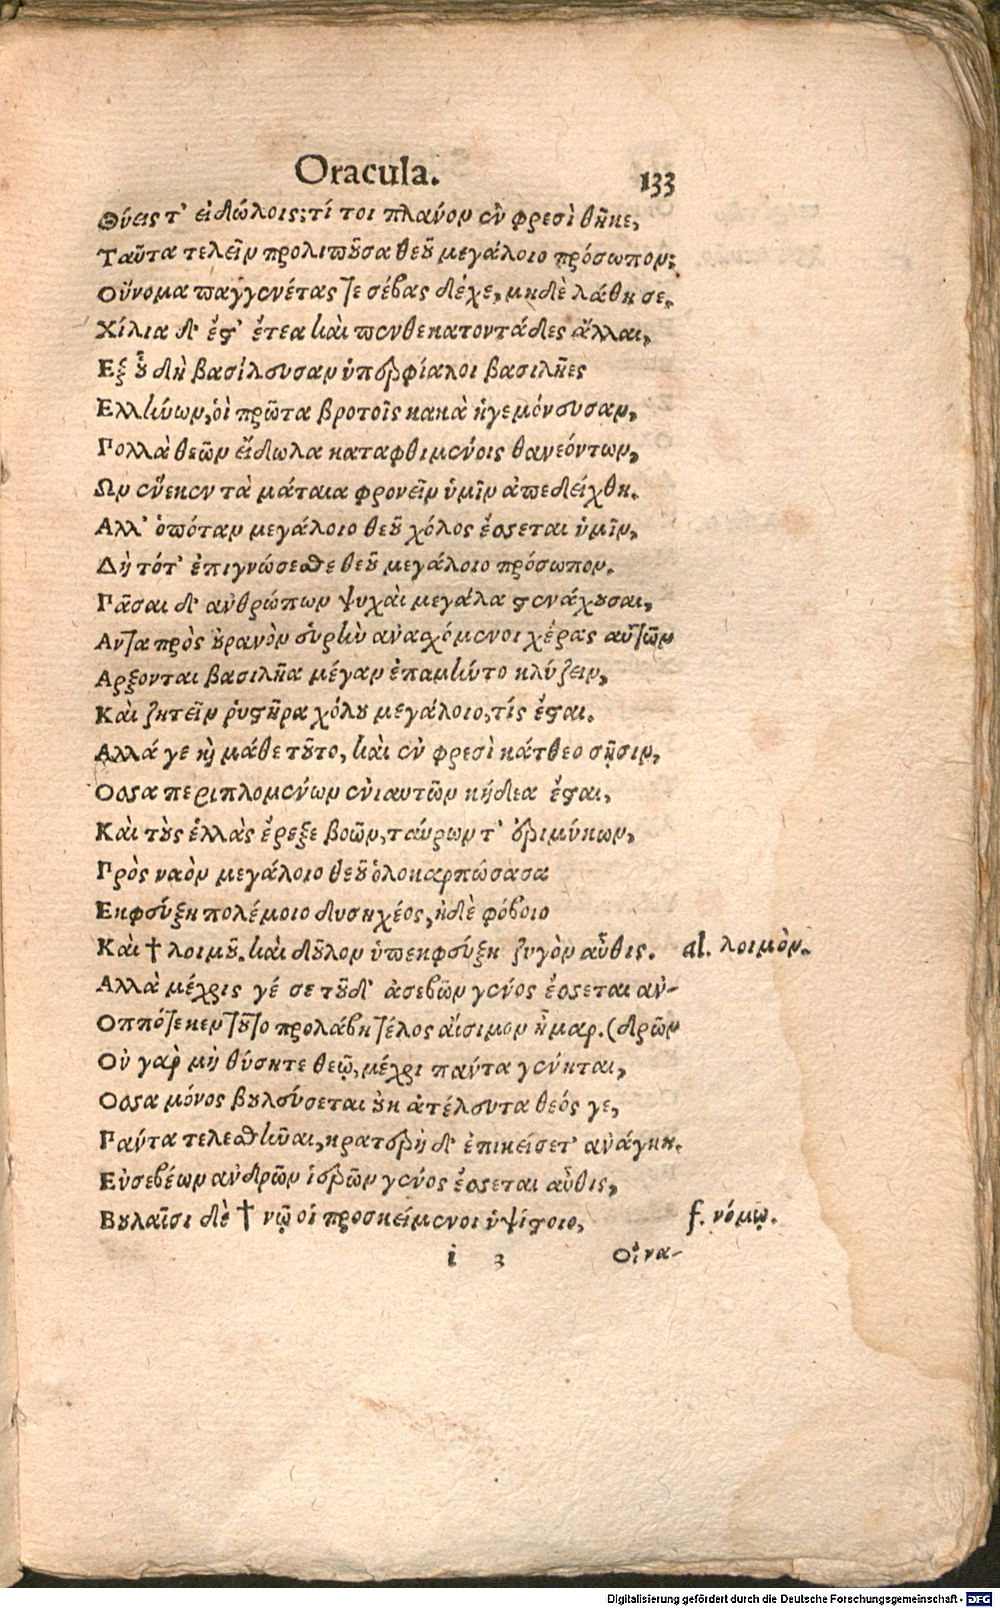 Oracula. 133
Θύεις τ' εἰδώλοις; τί τοι πλάνον ἐν φρεσὶ θῆκε,
Ταῦτα τελεῖν προλιποῦσα θεοῦ μεγάλοιο πρόσωπον;
Οὔνομα παγγενέτας τε σέβας δ' ἔχε, μηδὲ λάθη σε.
Χίλια δ' ἔστ' ἔτεα καὶ πενθεκατοντάδες ἄλλαι,
Εξ οὗ δὴ βασίλευσαν ὑπερφίαλοι βασιλῆες
Ελλήνων, οἳ πρῶτα βροτοῖς κακὰ ἡγεμόνευσαν,
Πολλὰ θεῶν εἴδωλα καταφθιμένοις θανεόντων,
Ων ἕνεκεν τὰ μάταια φρονεῖν ὑμῖν ἀπεδείχθη.
Αλλ' ὁπόταν μεγάλοιο θεοῦ χόλος ἔσσεται ὑμῖν,
Δὴ τότ' ἐπιγνώσεσθε θεοῦ μεγάλοιο πρόσωπον.
Πᾶσαι δ' ἀνθρώπων ψυχαὶ μεγάλα στενάχουσαι,
Αντα πρὸς οὐρανὸν εὐρὺν ἀνασχόμενοι χέρας αὐτῶν
Αρξονται βασιλῆα μέγαν ἐπαμύντο κλύζειν,
Καὶ ζητεῖν ῥυστῆρα χόλου μεγάλοιο, τίς ἔσται.
Αλλά γε καὶ μάθε τοῦτο, καὶ ἐν φρεσὶ κάτθεο σῇσιν,
Οσσα περιπλομένων ἐνιαυτῶν κήδεα ἔσται,
Καὶ τοὺς ἑλλὰς ἔρεξε βοῶν, ταύρων τ' ἐριμύκων,
Πρὸς ναὸν μεγάλοιο θεοῦ ὁλοκαρπώσασα
Εκφεύξη πολέμοιο δυσηχέος, ἠδὲ φόβοιο
Καὶ † λοιμοῦ. καὶ δοῦλον ὑπεκφεύξη ζυγὸν αὖθις. al. λοιμὸν.
Αλλὰ μέχρις γέ σε τοῦδ' ἀσεβῶν γένος ἔσσεται ἀν-
Οππότε κεν τοῦτο προλάβη τέλος αἴσιμον ἦμαρ. (δρῶν
Οὐ γὰρ μὴ θύσητε θεῷ, μέχρι πάντα γένηται,
Οσσα μόνος βουλεύσεται οὐκ ἀτέλευτα θεός γε,
Πάντα τελεσθῆναι, κρατερὴ δ' ἐπικείσετ' ἀνάγκη.
Εὐσεβέων ἀνδρῶν ἱερῶν γένος ἔσσεται αὖθις,
Βουλαῖσι δὲ † νῷ οἱ προσκείμενοι ὑψίστοιο, f. νόμῳ.
i 3 Οἵ να-
Digitalisierung gefördert durch die Deutsche Forschungsgemeinschaft - DFG